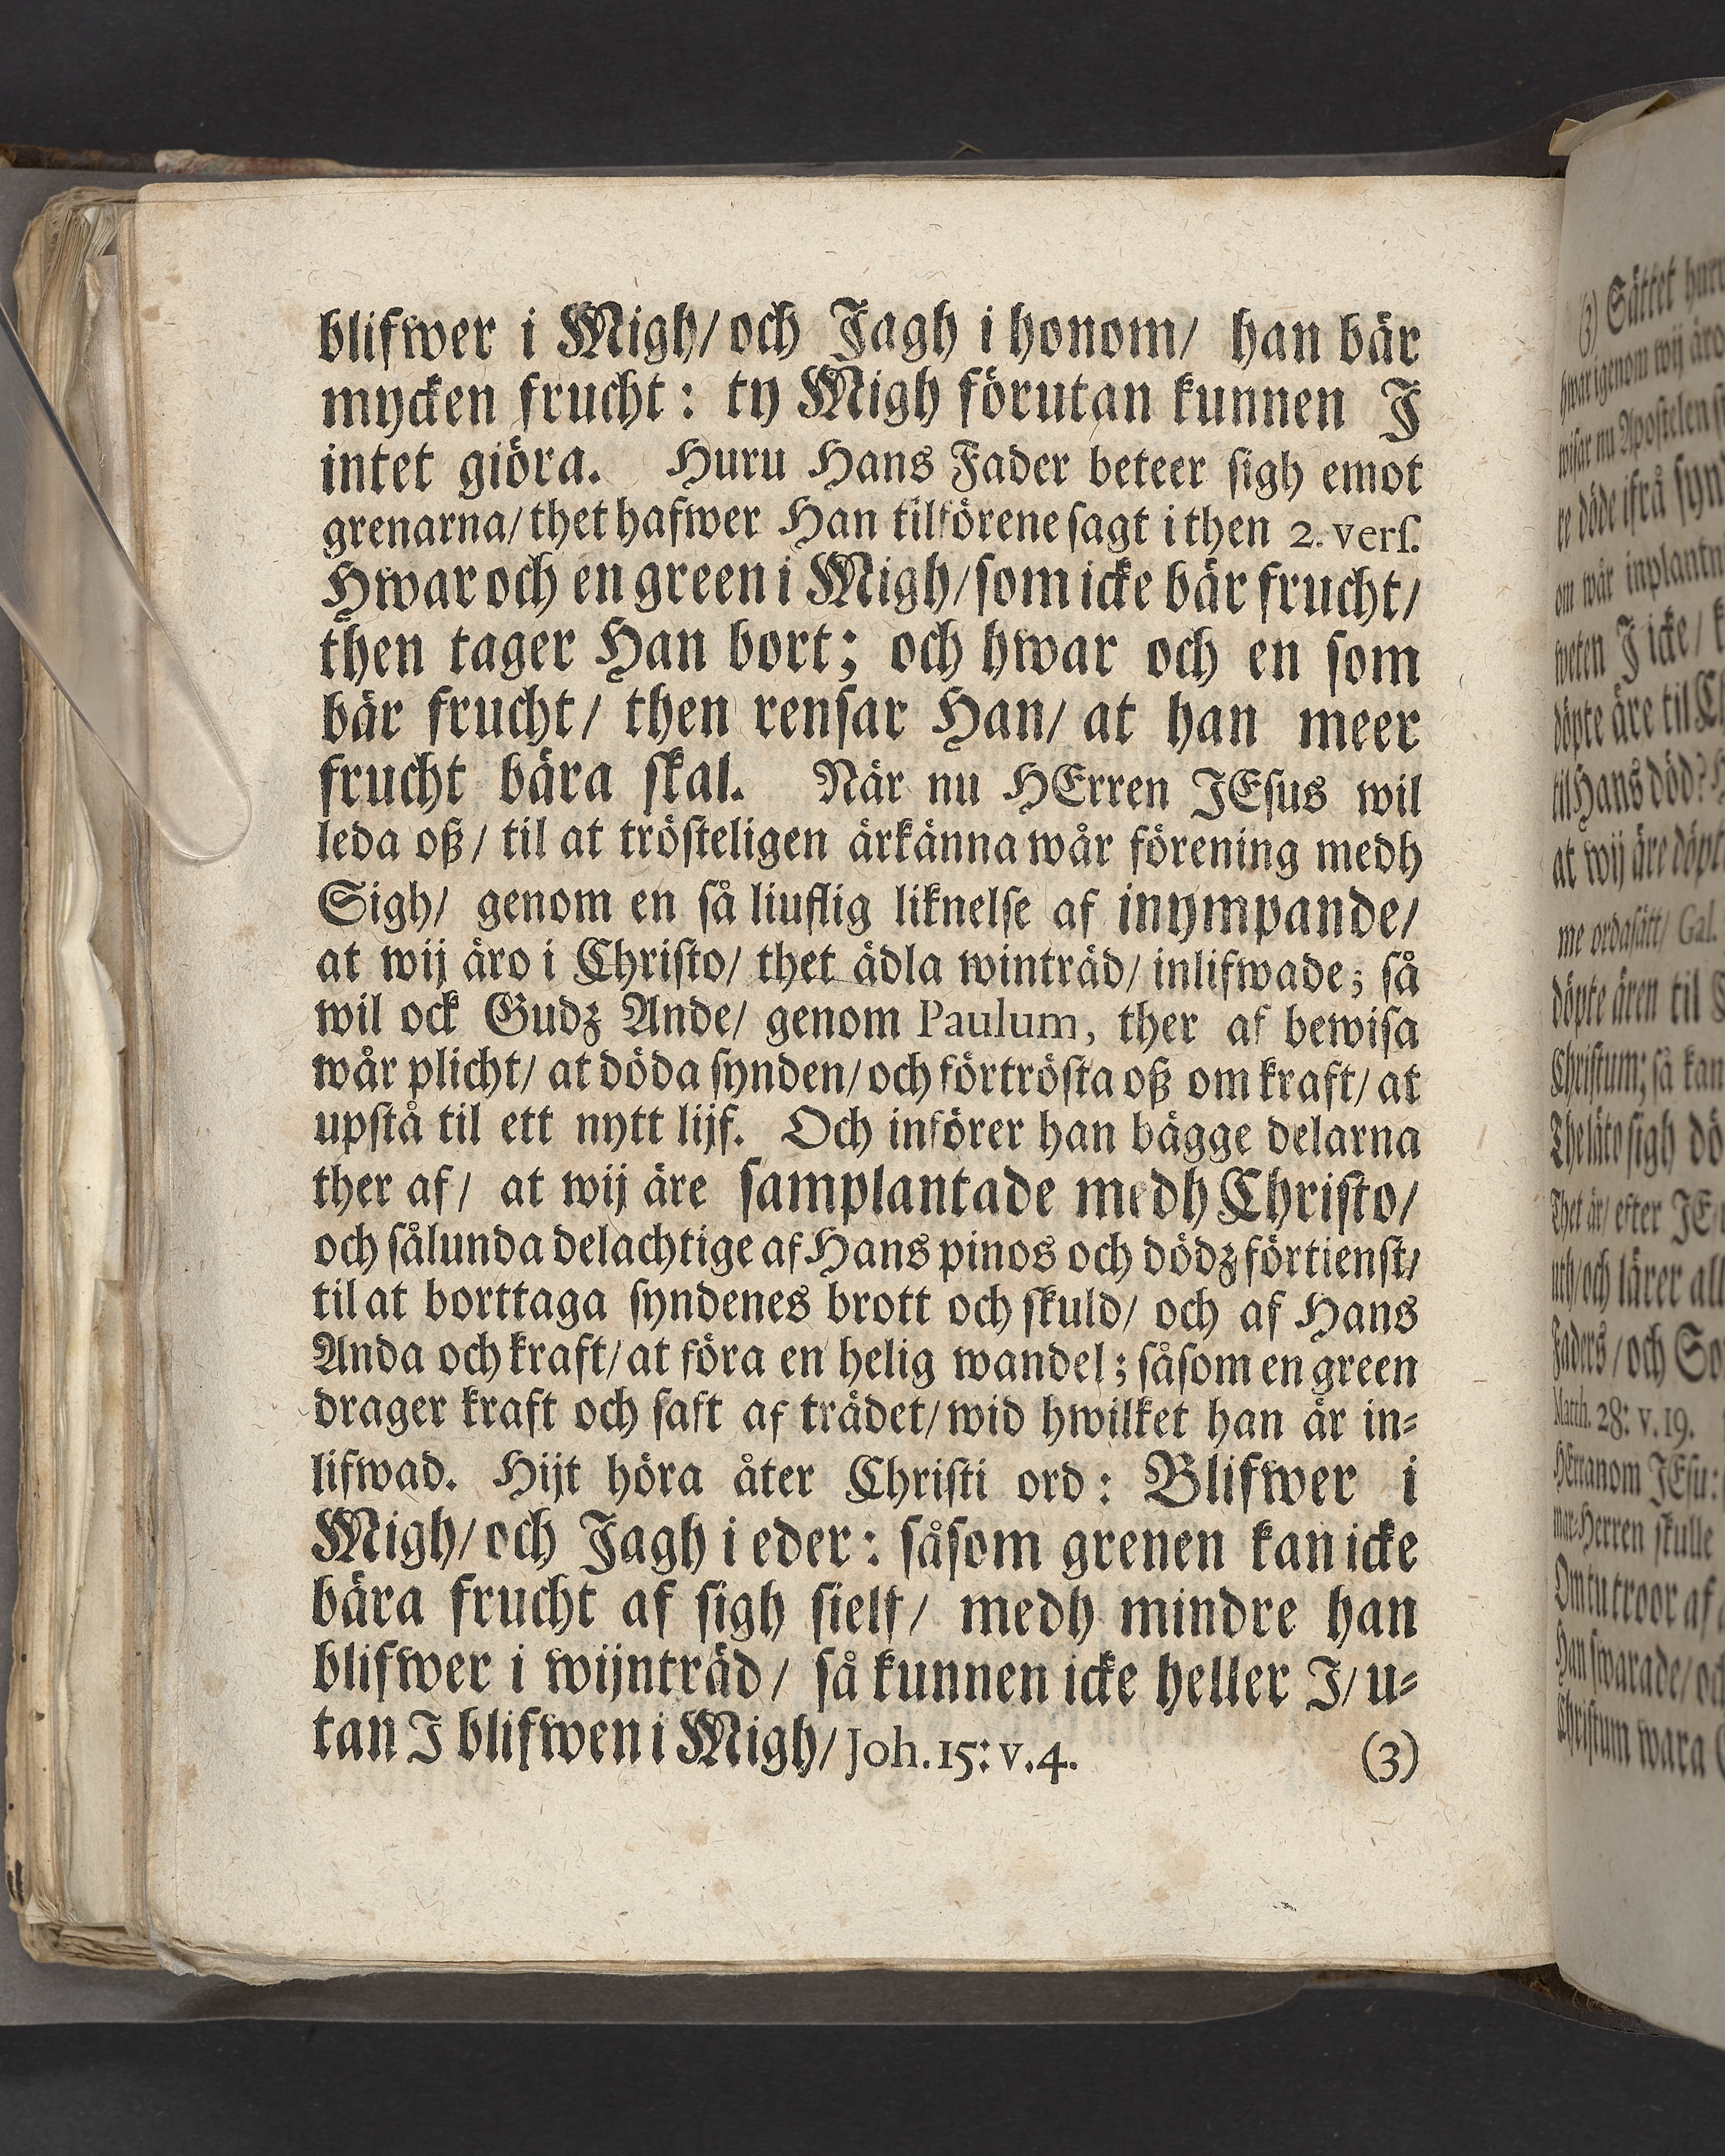 blifwer i Migh/ och Jagh i honom/ han bär
mycken frucht: ty Migh förutan kunnen J
intet giöra. Huru Hans Fader beteer sigh emot
grenarna/ thet hafwer Han tilförene sagt i then 2. verſ.
Hwar och en green i Migh/ som icke bär frucht/
then tager Han bort; och hwar och en som
bär frucht/ then rensar Han/ at han meer
frucht bära skal. När nu HErren JEsus wil
leda oß/ til at trösteligen ärkänna wår förening medh
Sigh/ genom en så liuflig liknelse af inympande/
at wij äro i Christo/ thet ädla winträd/ inlifwade; så
wil ock Gudz Ande/ genom Paulum, ther af bewisa
wår plicht/ at döda synden/ och förtrösta oß om kraft/ at
upstå til ett nytt lijf. Och införer han bägge delarna
ther af/ at wij äre samplantade medh Christo/
och sålunda delachtige af Hans pinos och dödz förtienst/
til at borttaga syndenes brott och skuld/ och af Hans
Anda och kraft/ at föra en helig wandel; såsom en green
drager kraft och saft af trädet/ wid hwilket han är in-
lifwad. Hijt höra åter Christi ord: Blifwer i
Migh/ och Jagh i eder: såsom grenen kan icke
bära frucht af sigh sielf/ medh mindre han
blifwer i wijnträd/ så kunnen icke heller J/ u-
tan J blifwen i Migh/ Joh. 15: v. 4. (3)
(3) Sättet
hwarigenom wij äro
wisar nu Apostelen
re döde ifrå
om wår
weten J icke/
döpte äre til
til Hans död?
at wij äre
me ordasätt/ Gal.
döpte ären til
Christum; så kan
The läto sigh
Thet är/ efter
och lärer
Faders/ och
Matth. 28: v. 19.
HErranom JEsu:
Herren skulle
Om tu troor af
Han swarade/
Christum wara